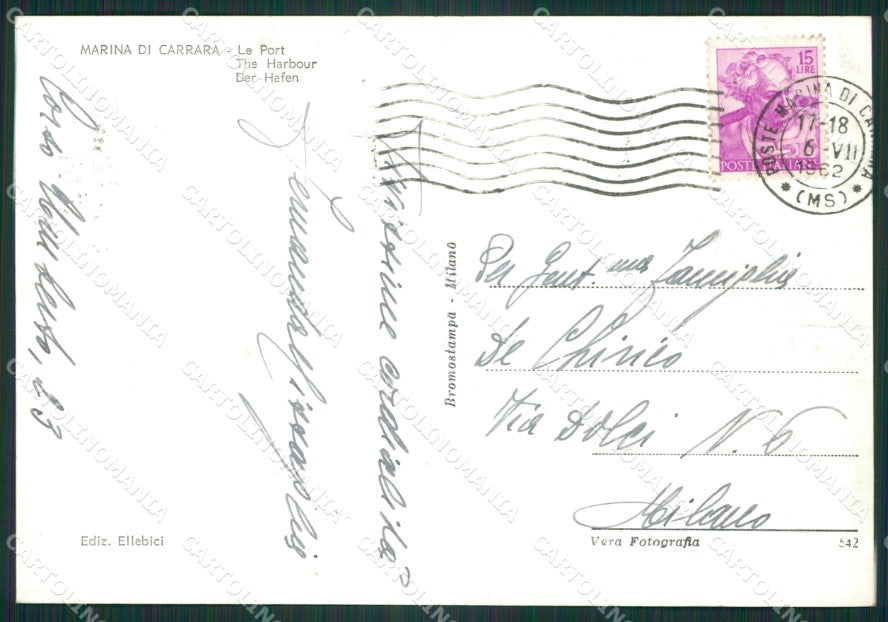 MARINA DI CARRARA - Le Port
The Harbour
Der Hafen
15
LIRE
POSTE ITALIANE
POSTE MARINA DI CARRARA
17-18
6 VII
1962
(MS)
Vivissime cordialità
Fernanda
Corso
23
Bromostampa - Milano
Per Gent.ma Famiglia
De Chirico
Via Dolci N. 6
Milano
Ediz. Ellebici
Vera Fotografia
542
CARTOLINOMANIA